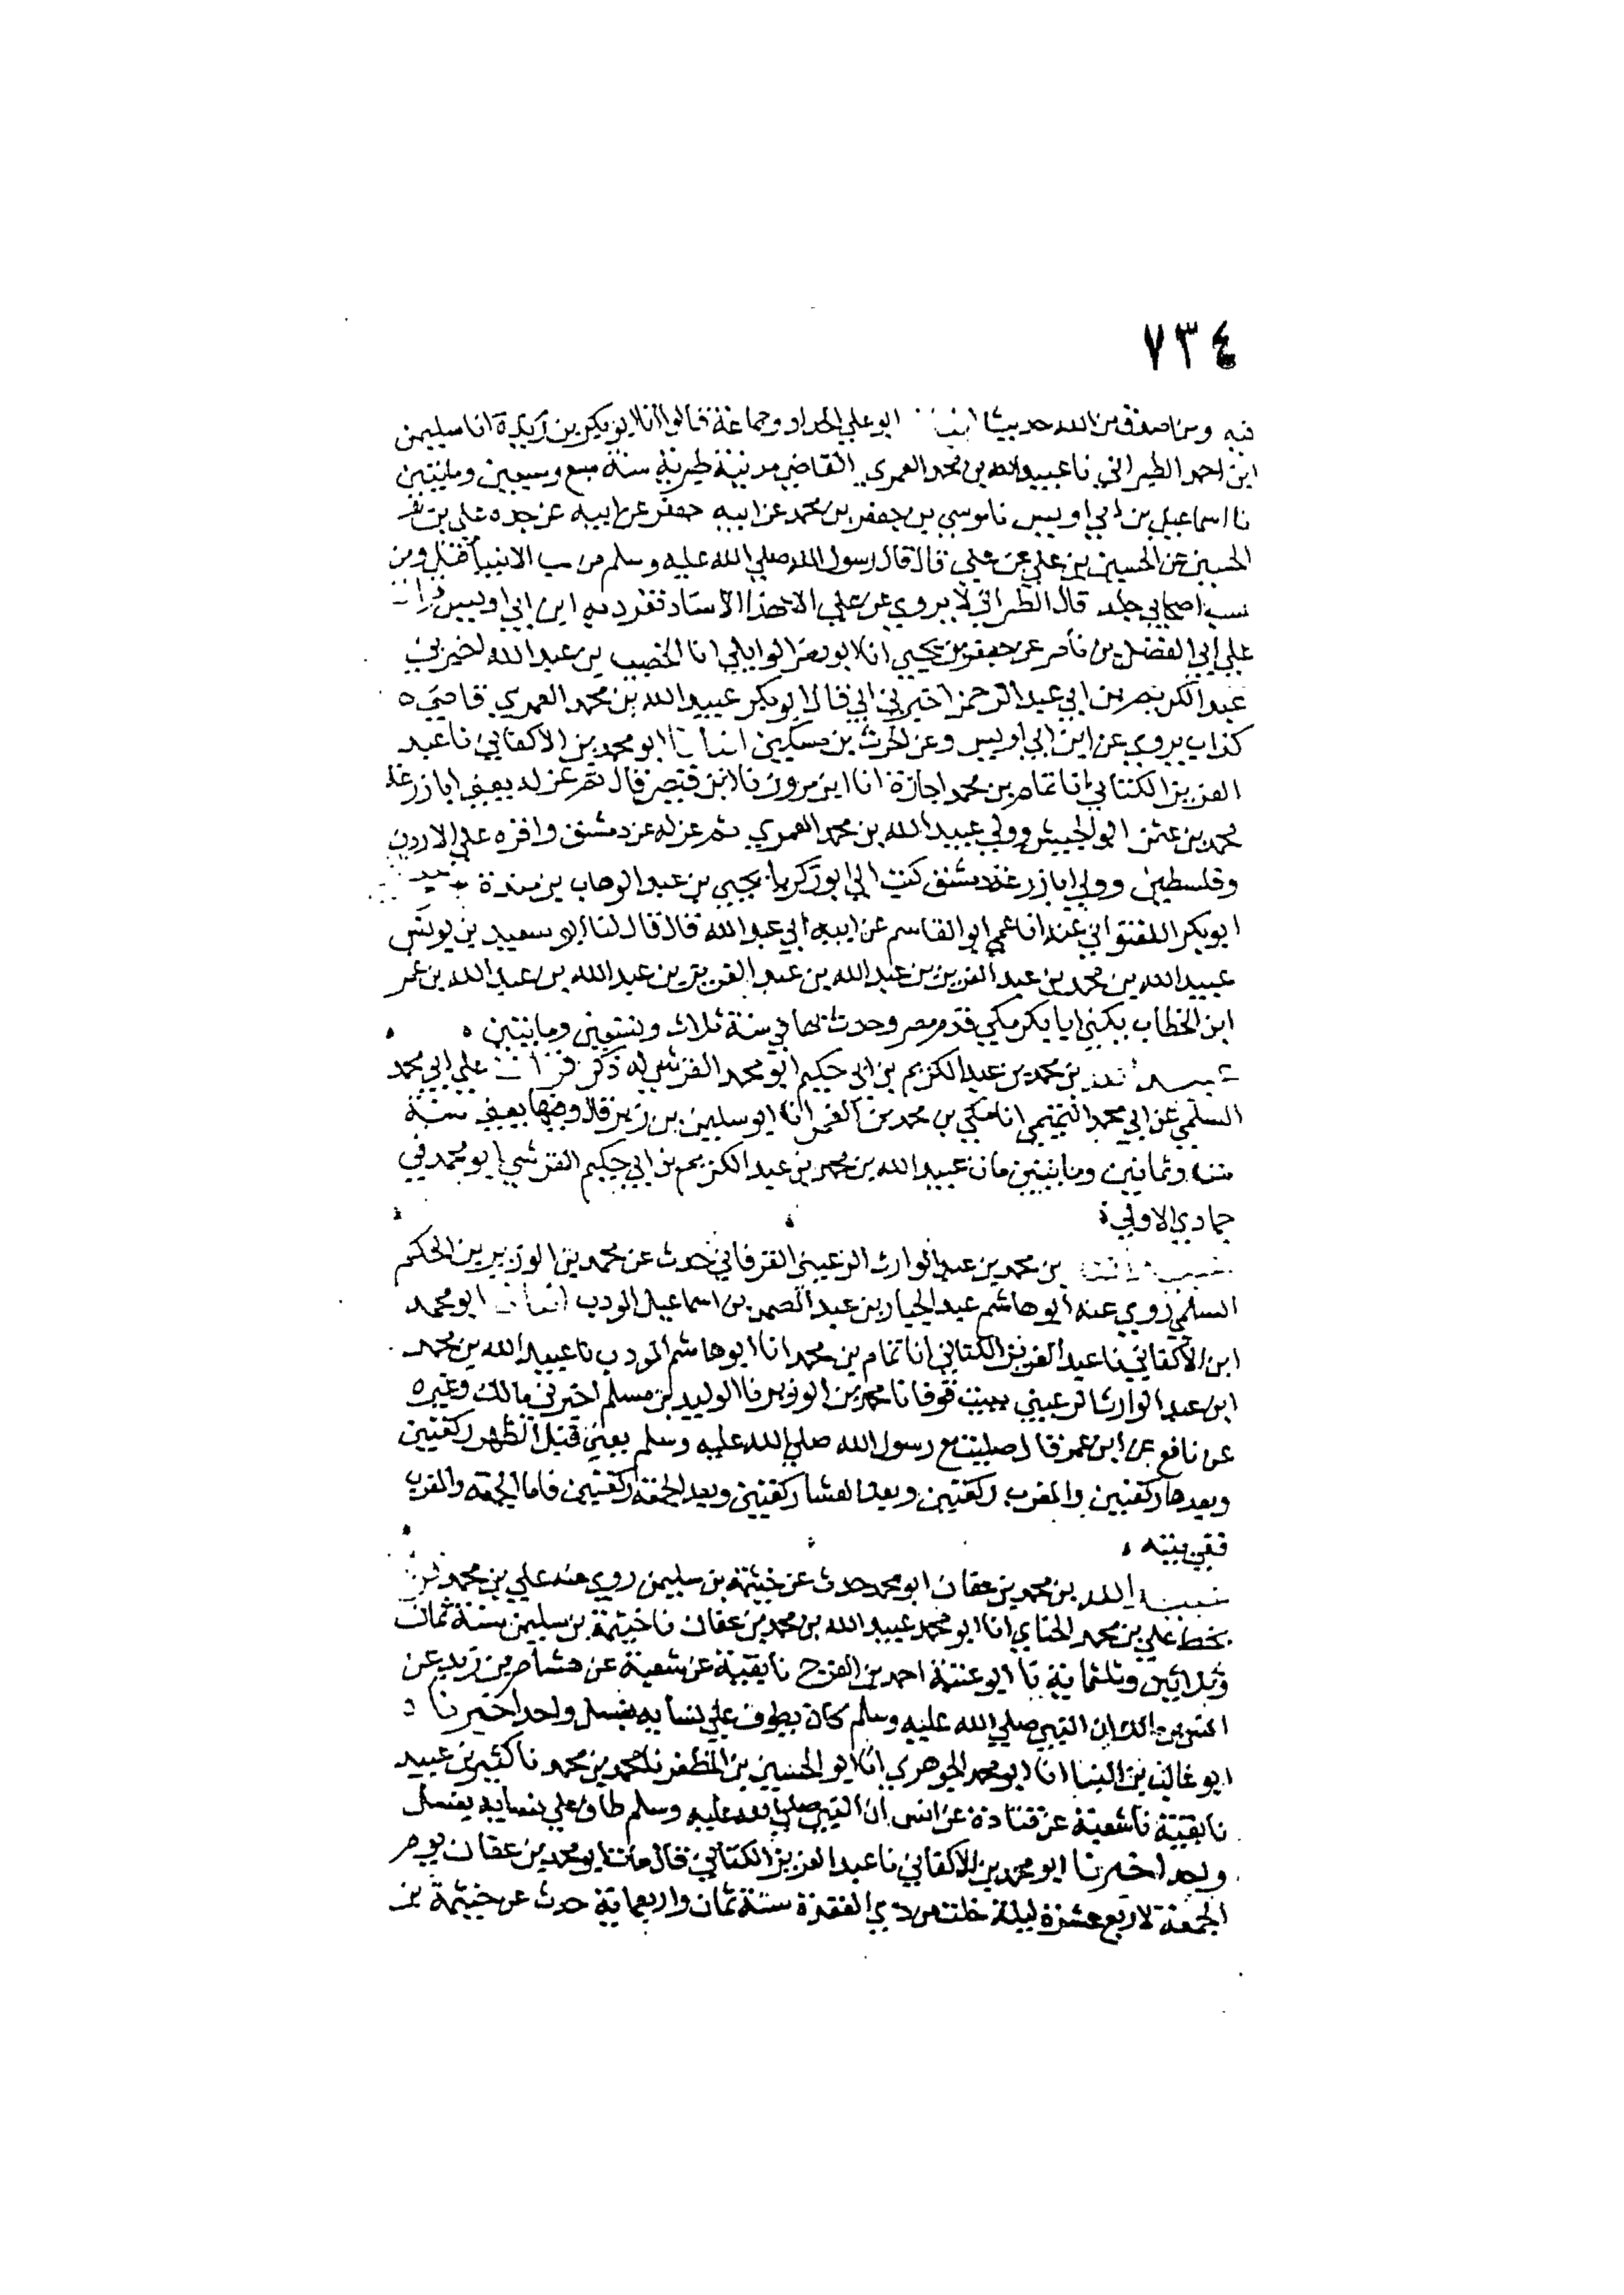 ٧٣٤
فيه ومن اصدق من الله حديثا ابو علي الحداد وجماعة قالوا انا ابو بكر بن ريذة انا سليمن
ابن احمد الطبراني نا عبيد الله بن محمد العمري القاضي بمدينة طبرية سنة سبع وسبعين ومايتين
نا اسماعيل بن ابي اويس نا موسي بن جعفر بن محمد عن ابيه جعفر عن ابيه عن جده علي بن
الحسين عن الحسين بن علي عن علي قال قال رسول الله صلي الله عليه وسلم من سب الانبيا قتل ومن
سب اصحابي جلد قال الطبراني لا يروي عن علي الا بهذا الاسناد تفرد به ابن ابي اويس قرات
علي ابي الفضل بن ناصر عن جعفر بن يحيي انا ابو نصر الوايلي انا الخصيب بن عبد الله اخبرني
عبد الكريم بن ابي عبد الرحمن اخبرني ابي قال ابو بكر عبيد الله بن محمد العمري قاضي
كذاب يروي عن ابن ابي اويس وعن الحرث بن مسكين انبانا ابو محمد بن الاكفاني نا عبد
العزيز الكتاني انا تمام بن محمد اجازة انا ابن مرون نا ابن قال ثم عزله يعني ابا زرعة
محمد بن عثمن ابو الجيش وولي عبيد الله بن محمد العمري ثم عزله عن دمشق واقره علي الاردن
وفلسطين وولي ابا زرعة دمشق كتب الي ابو زكريا يحيي بن عبد الوهاب بن مندة
ابو بكر اللفتواني عنه انا عمي ابو القاسم عن ابيه ابي عبد الله قال قال لنا ابو سعيد بن يونس
عبيد الله بن محمد بن عبد العزيز بن عبد الله بن عبد العزيز بن عبد الله بن عبد الله بن عمر
ابن الخطاب يكني ابا بكر مكي قدم مصر وحدث بها في سنة ثلاث وتسعين ومايتين
عبيد الله بن محمد بن عبد الكريم بن ابي حكيم ابو محمد القرشي له ذكر قرات علي ابي محمد
السلمي عن ابي محمد التميمي انا مكي بن محمد بن الغمر انا ابو سليمن بن زبر قال وفيها يعني سنة
وثمانين ومايتين مات عبيد الله بن محمد بن عبد الكريم بن ابي حكيم القرشي ابو محمد في
جمادي الاولي
عبيد الله بن محمد بن عبد الوارث الرعيني القوفاني حدث عن محمد بن الوزير بن الحكم
السلمي روي عنه ابو هاشم عبد الجبار بن عبد الصمد بن اسماعيل المودب انبانا ابو محمد
ابن الاكفاني نا عبد العزيز الكتاني انا تمام بن محمد انا ابو هاشم المودب نا عبيد الله بن محمد
ابن عبد الوارث الرعيني ببيت قوفا نا محمد بن الوزير نا الوليد بن مسلم اخبرني مالك وغيره
عن نافع عن ابن عمر قال صليت مع رسول الله صلي الله عليه وسلم يعني قبل الظهر ركعتين
وبعدها ركعتين والمغرب ركعتين وبعد العشا ركعتين وبعد الجمعة ركعتين فاما الجمعة والمغرب
ففي بيته
عبيد الله بن محمد بن عفان ابو محمد حدث عن خيثمة بن سليمن روي عنه علي بن محمد
بخط علي بن محمد الحناي انا ابو محمد عبيد الله بن محمد بن عفان نا خيثمة بن سليمن سنة ثمان
وثلاثين وثلثماية نا ابو عتبة احمد بن الفرج نا بقية عن شعبة عن هشام بن زيد عن
انس بن مالك ان النبي صلي الله عليه وسلم كان يطوف علي نسايه بغسل واحد اخبرنا
ابو غالب بن البنا انا ابو محمد الجوهري انا ابو الحسين بن المظفر نا محمد بن محمد نا كثير بن عبيد
نا بقية نا شعبة عن قتادة عن انس ان النبي صلي الله عليه وسلم طاف علي نسايه بغسل
واحد اخبرنا ابو محمد بن الاكفاني نا عبد العزيز الكتاني قال مات ابو محمد بن عفان يوم
الجمعة لاربع عشرة ليلة خلت من ذي القعدة سنة ثمان واربعماية حدث عن خيثمة بن